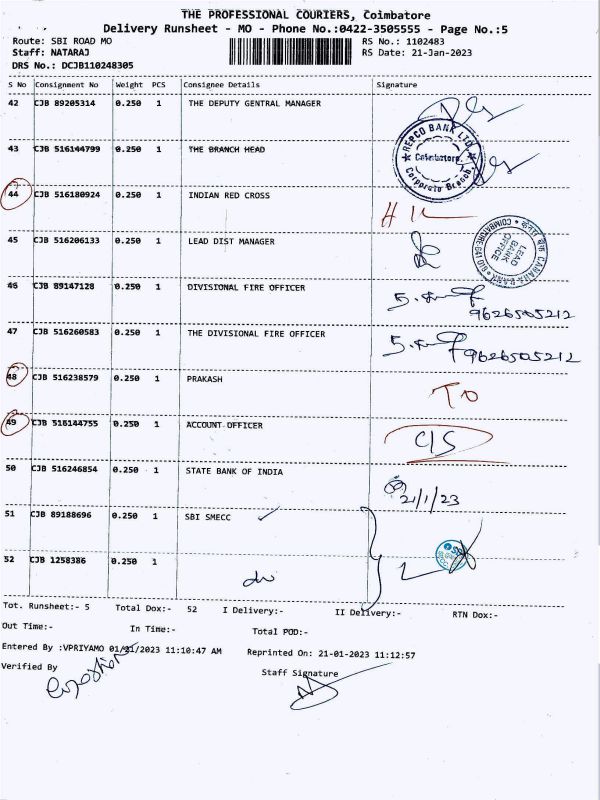 THE PROFESSIONAL COURIERS, Coimbatore
Delivery Runsheet - MO - Phone No.:0422-3505555 - Page No.:5
Route: SBI ROAD MO RS No.: 1102483
Staff: NATARAJ RS Date: 21-Jan-2023
DRS No.: DCJB110248305
S No Consignment No Weight PCS Consignee Details Signature
42 CJB 89205314 0.250 1 THE DEPUTY GENTRAL MANAGER
43 CJB 516144799 0.250 1 THE BRANCH HEAD
REPCO BANK LTD
Coimbatore
Corporate Branch
44 CJB 516180924 0.250 1 INDIAN RED CROSS
45 CJB 516206133 0.250 1 LEAD DIST MANAGER
CANARA BANK
LEAD BANK OFFICE
COIMBATORE-641
46 CJB 89147128 0.250 1 DIVISIONAL FIRE OFFICER
9626505212
47 CJB 516260583 0.250 1 THE DIVISIONAL FIRE OFFICER
9626505212
48 CJB 516238579 0.250 1 PRAKASH
TO
49 CJB 516144755 0.250 1 ACCOUNT OFFICER
C/S
50 CJB 516246854 0.250 1 STATE BANK OF INDIA
21/1/23
51 CJB 89188696 0.250 1 SBI SMECC
52 CJB 1258386 0.250 1
Tot. Runsheet:- 5 Total Dox:- 52 I Delivery:- II Delivery:- RTN Dox:-
Out Time:- In Time:- Total POD:-
Entered By :VPRIYAMO 01/21/2023 11:10:47 AM Reprinted On: 21-01-2023 11:12:57
Verified By Staff Signature